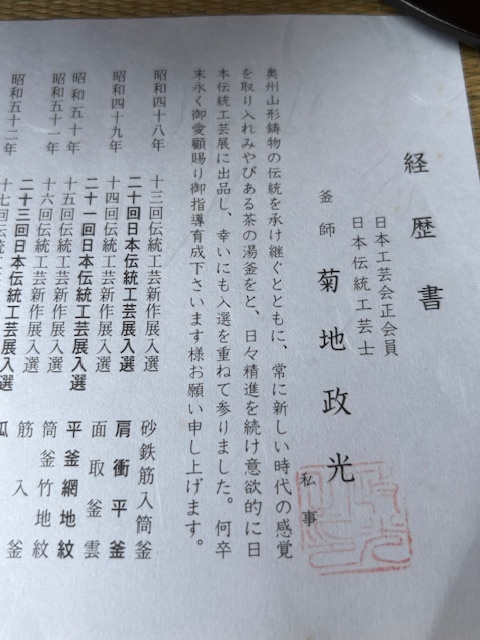 経歴書
日本工芸会正会員
日本伝統工芸士
釜師 菊地政光
私事
奥州山形鋳物の伝統を承け継ぐとともに、常に新しい時代の感覚
を取り入れみやびある茶の湯釜をと、日々精進を続け意欲的に日
本伝統工芸展に出品し、幸いにも入選を重ねて参りました。何卒
末永く御愛顧賜り御指導育成下さいます様お願い申し上げます。
昭和四十八年 十三回伝統工芸新作展入選 砂鉄筋入筒釜
二十回日本伝統工芸展入選 肩衝平釜
昭和四十九年 十四回伝統工芸新作展入選 面取釜雲
二十一回日本伝統工芸展入選 平釜網地紋
昭和五十年 十五回伝統工芸新作展入選 筒釜竹地紋
昭和五十一年 十六回伝統工芸新作展入選 筋入釜
二十三回日本伝統工芸展入選
昭和五十二年 十七回伝統工芸新作展入選